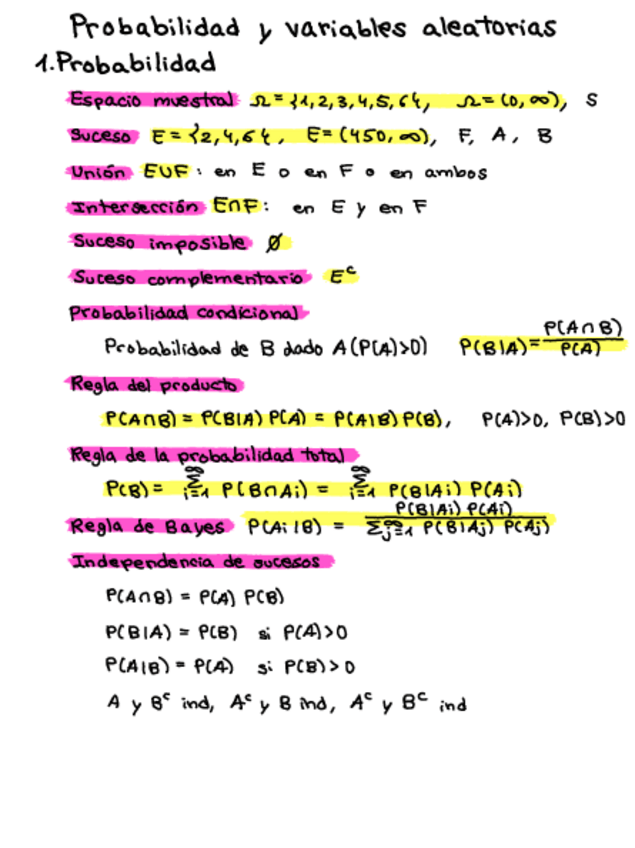 Probabilidad y variables aleatorias
1.Probabilidad
Espacio muestral Ω={1,2,3,4,5,6}, Ω=(0,∞), S
Suceso E={2,4,6}, E=(450,∞), F, A, B
Unión EUF: en E o en F o en ambos
Intersección E∩F: en E y en F
Suceso imposible Ø
Suceso complementario Eᶜ
Probabilidad condicional
Probabilidad de B dado A (P(A)>0) P(B|A)=P(A∩B)/P(A)
Regla del producto
P(A∩B) = P(B|A) P(A) = P(A|B) P(B), P(A)>0, P(B)>0
Regla de la probabilidad total
P(B) = Σ_{i=1}^{∞} P(B∩Ai) = Σ_{i=1}^{∞} P(B|Ai) P(Ai)
Regla de Bayes P(Ai|B) = P(B|Ai) P(Ai) / Σ_{j=1}^{∞} P(B|Aj) P(Aj)
Independencia de sucesos
P(A∩B) = P(A) P(B)
P(B|A) = P(B) si P(A)>0
P(A|B) = P(A) si P(B)>0
A y Bᶜ ind, Aᶜ y B ind, Aᶜ y Bᶜ ind